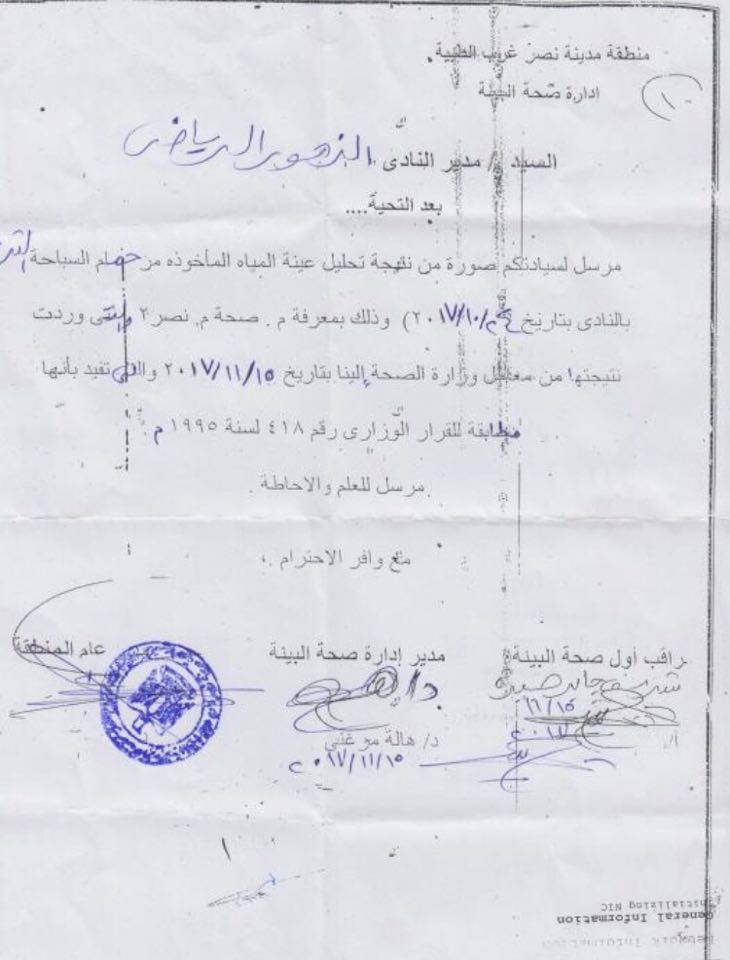 منطقة مدينة نصر غرب الطبية
إدارة صحة البيئة
(١٠)
السيد / مدير النادى الزهور الرياضى
بعد التحية....
مرسل لسيادتكم صورة من نتيجة تحليل عينة المياه المأخوذه من حمام السباحة
بالنادى بتاريخ ٢٤/١٠/٢٠١٧) وذلك بمعرفة م . صحة م. نصر ٢ والتى وردت
نتيجتها من معامل وزارة الصحة إلينا بتاريخ ١٥/١١/٢٠١٧ والتى تفيد بأنها
مطابقة للقرار الوزارى رقم ٤١٨ لسنة ١٩٩٥ م
مرسل للعلم والاحاطة .
مع وافر الاحترام ،
راقب أول صحة البيئة
شريف جابر
١٥/١١
٢٠١٧
مدير إدارة صحة البيئة
د/ هالة مرغنى
١٥/١١/٢٠١٧
عام المنطقة
١
General Information
Initializing NIC
Network Information